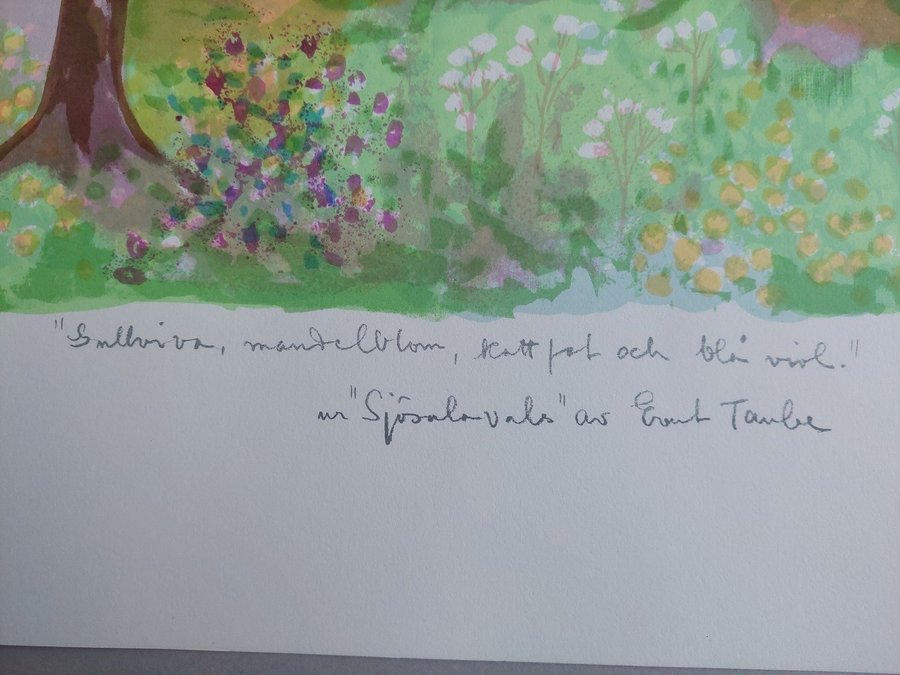 "Gullviva, mandelblom, kattfot och blå viol."
ur "Sjösala-vals" av Evert Taube